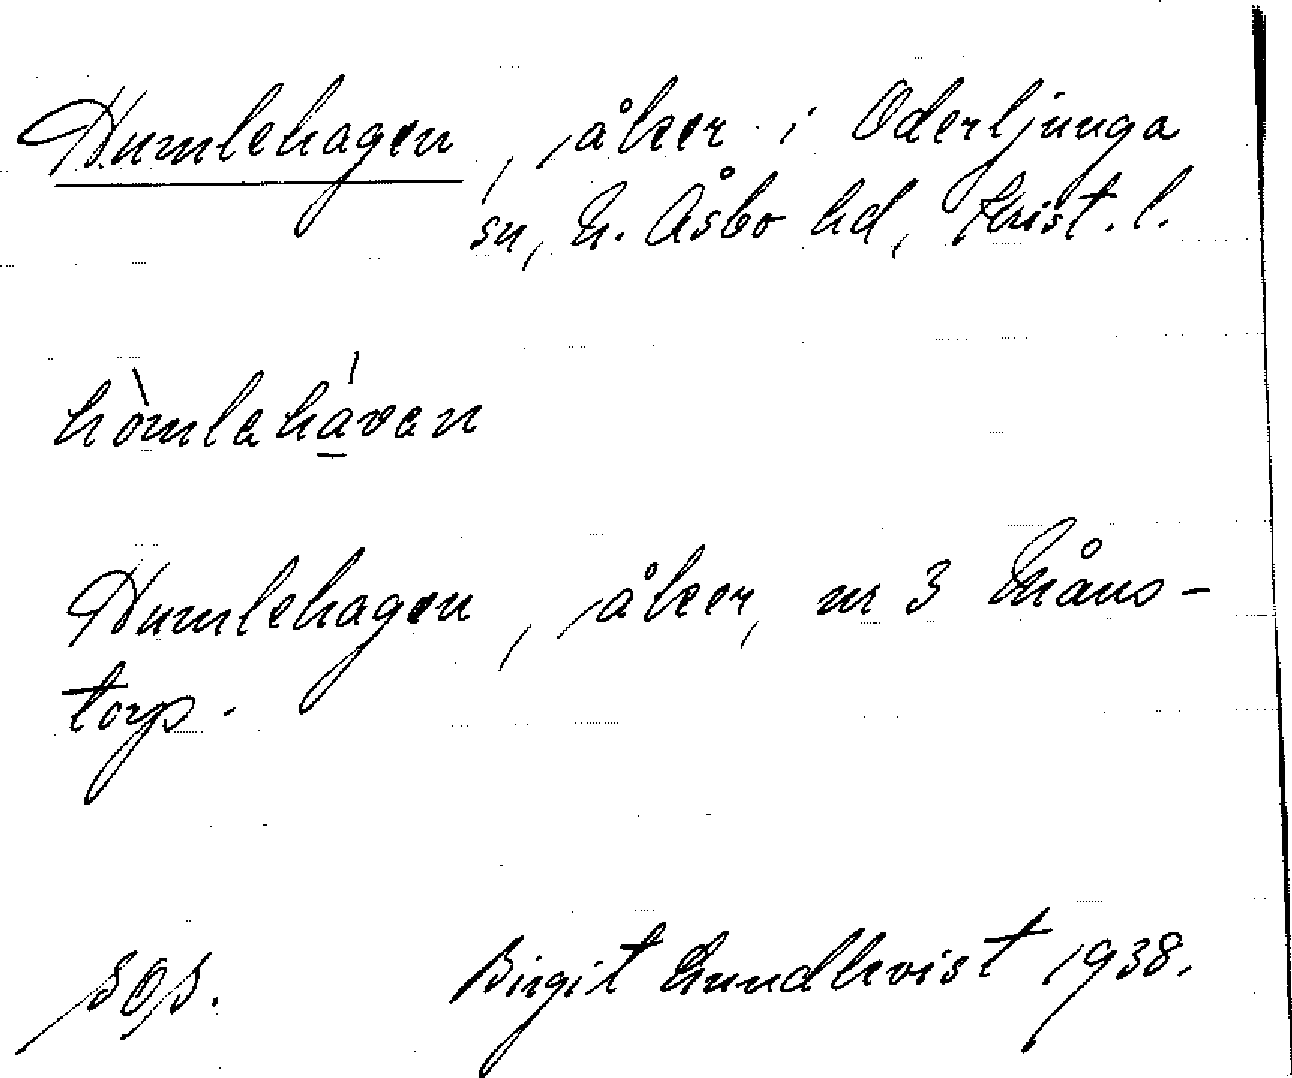 Humlehagen, åker i Oderljunga
sn, N. Åsbo hd, Krist. l.
hòmlahávan
Humlehagen, åker, nr 3 Måns-
torp.
SOS. Birgit Lundkvist 1938.